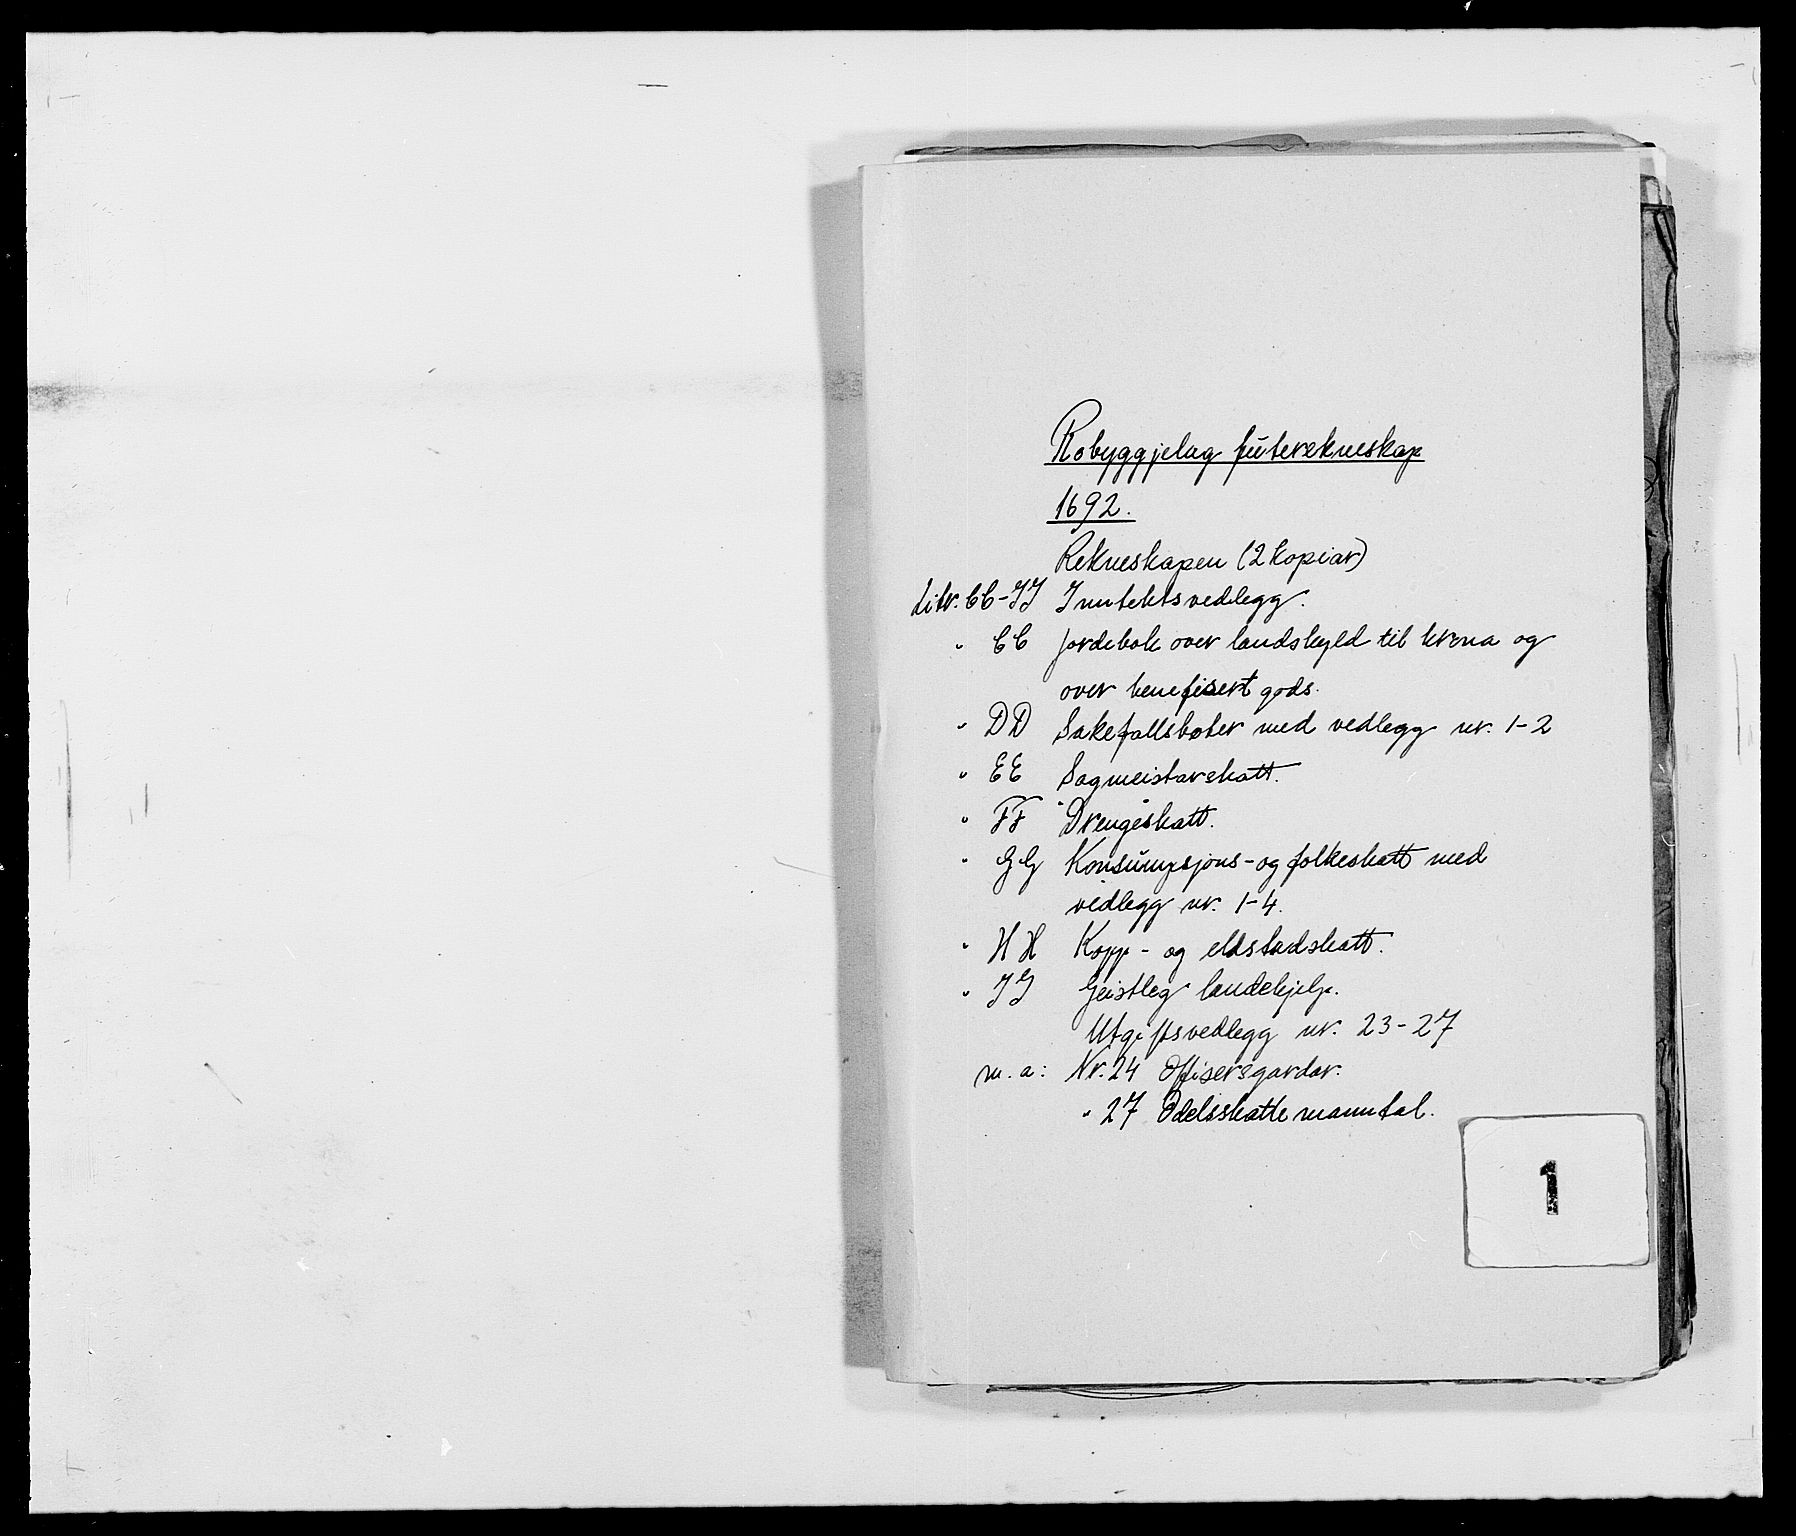 Robyggjelag futerekneskap
1692.
Rekneskapen (2 kopiar)
Litr. CC-JJ Inntektsvedlegg.
" CC Jordebok over landskyld til krona og
over benefisert gods.
" DD Sakefallsbøter med vedlegg nr. 1-2
" EE Sagmeistarskatt.
" FF "Drengeskatt.
" GG Konsumpsjons- og folkeskatt med
vedlegg nr. 1-4.
" HH Kopp- og eldstadskatt.
" JJ Geistleg landehjelp.
Utgiftsvedlegg nr. 23-27
m. a: Nr. 24 Offisersgardar.
" 27 Odelsskattemanntal.
1